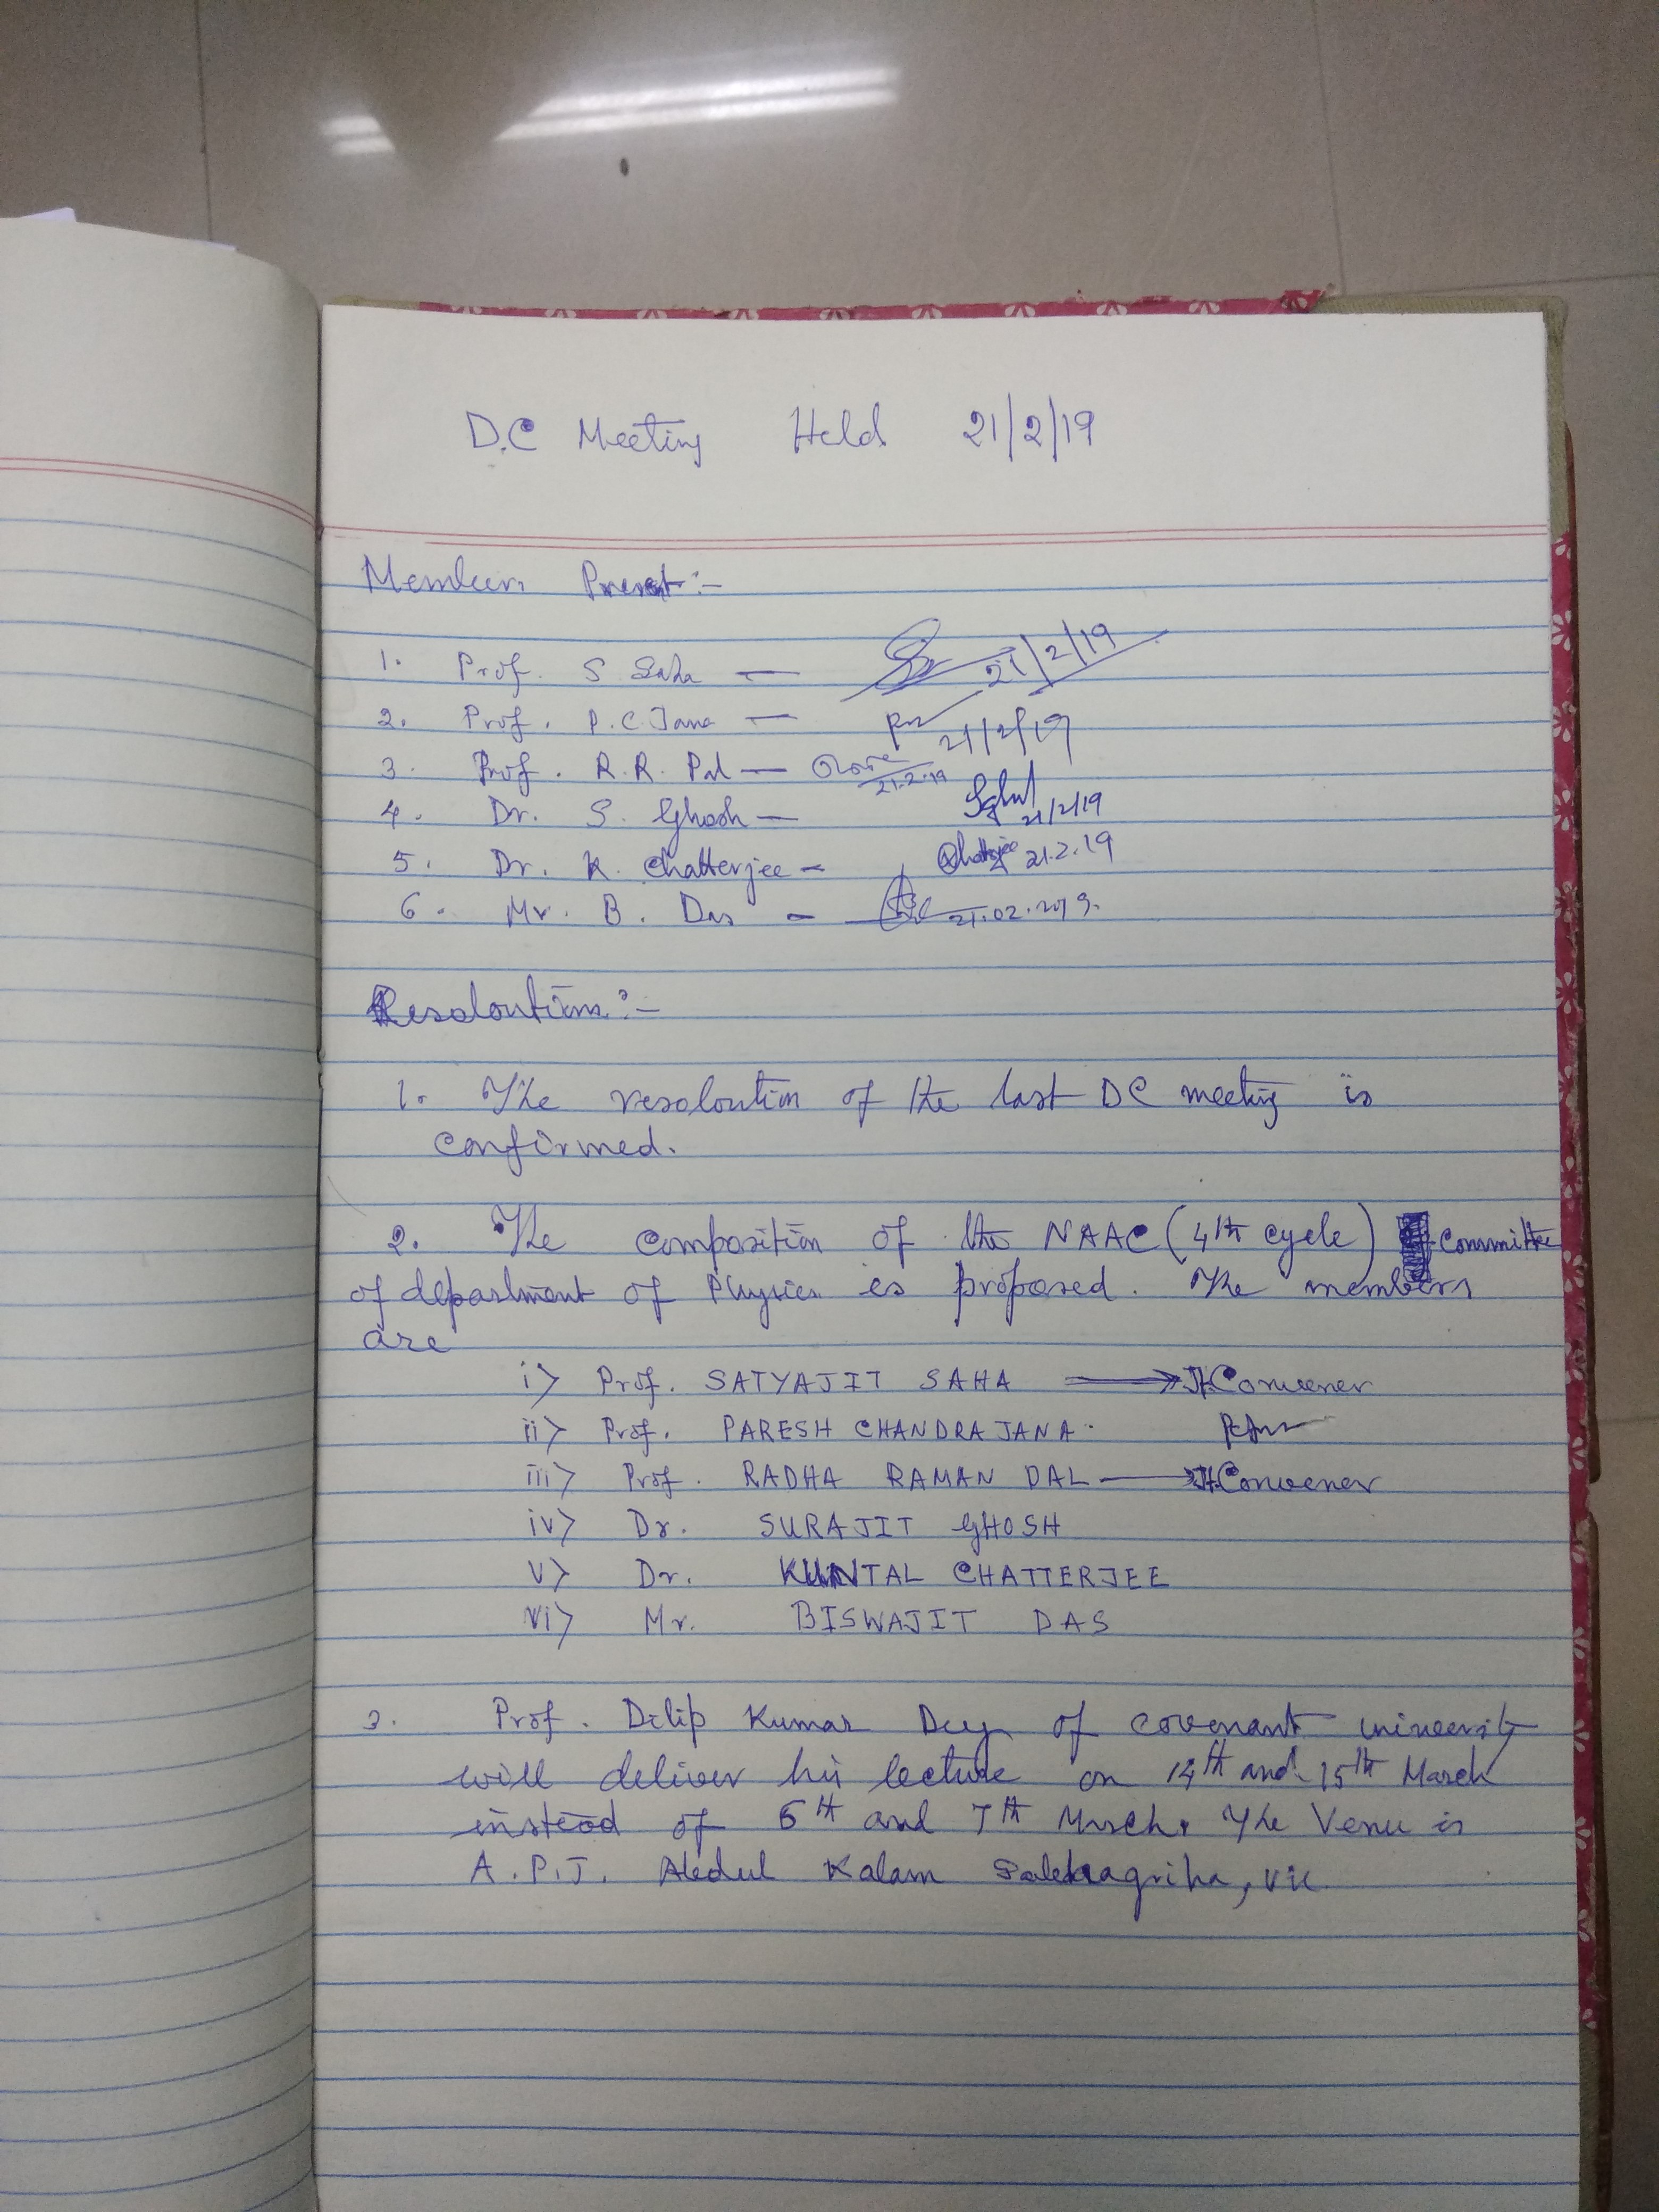 D.C Meeting Held 21/2/19
Members Present:-
1. Prof. S Saha — 21/2/19
2. Prof. P.C. Jana — 21/2/19
3. Prof. R.R. Pal — 21.2.19
4. Dr. S. Ghosh — 21/2/19
5. Dr. K. Chatterjee — Chatterjee 21.2.19
6. Mr. B. Das — 21.02.2019.
Resoloutions:-
1. The resoloution of the last DC meeting is
confirmed.
2. The composition of the NAAC (4th cycle) Committee
of department of Physics is proposed. The members
are
i> Prof. SATYAJIT SAHA → Jt Convener
ii> Prof. PARESH CHANDRA JANA.
iii> Prof. RADHA RAMAN PAL → Jt Convener
iv> Dr. SURAJIT GHOSH
v> Dr. KUNTAL CHATTERJEE
vi> Mr. BISWAJIT DAS
3. Prof. Dilip Kumar Dey of covenant university
will deliver his lecture on 14th and 15th March
instead of 6th and 7th March. The Venu is
A.P.J. Abdul Kalam Sabhagriha, VU.